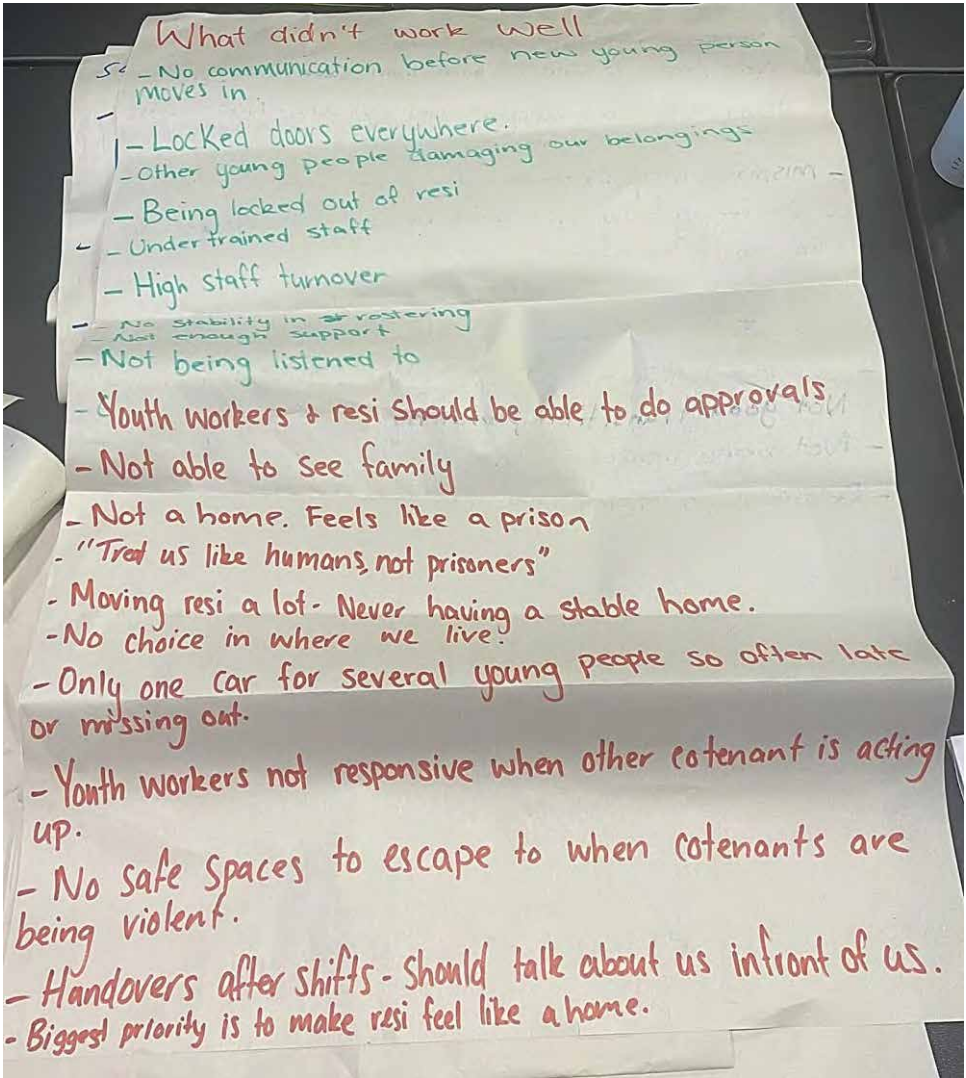 What didn't work well
- No communication before new young person
moves in
- Locked doors everywhere.
- Other young people damaging our belongings
- Being locked out of resi
- Under trained staff
- High staff turnover
- No stability in rostering
- Not enough support
- Not being listened to
- Youth workers & resi should be able to do approvals
- Not able to see family
- Not a home. Feels like a prison
- "Treat us like humans, not prisoners"
- Moving resi a lot - Never having a stable home.
- No choice in where we live!
- Only one car for several young people so often late
or missing out.
- Youth workers not responsive when other cotenant is acting
up.
- No safe spaces to escape to when cotenants are
being violent.
- Handovers after shifts - Should talk about us infront of us.
- Biggest priority is to make resi feel like a home.